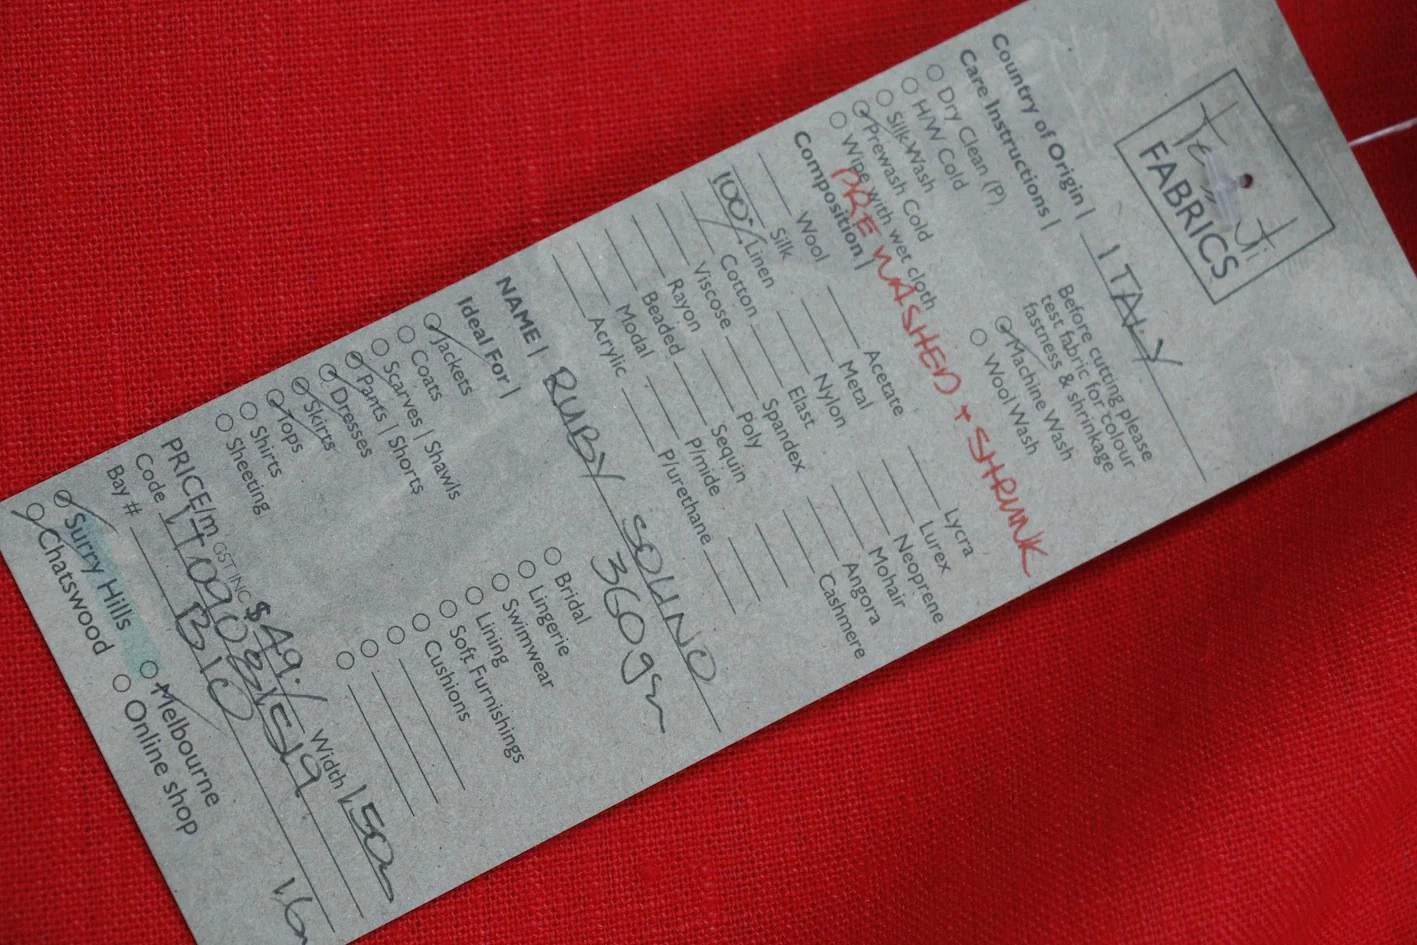 Tessuti
FABRICS
Country of Origin | ITALY
Care Instructions |
Dry Clean (P)
H/W Cold
Silk Wash
Prewash Cold
Wipe with wet cloth
Before cutting please
test fabric for colour
fastness & shrinkage
Machine Wash
Wool Wash
PRE WASHED + SHRUNK
Composition |
Wool
Silk
100% Linen
Cotton
Viscose
Rayon
Beaded
Modal
Acrylic
Acetate
Metal
Nylon
Elast
Spandex
Poly
Sequin
P/mide
P/urethane
Lycra
Lurex
Neoprene
Mohair
Angora
Cashmere
NAME | RUBY SOLINO
360gm
Ideal For |
Jackets
Coats
Scarves | Shawls
Pants | Shorts
Dresses
Skirts
Tops
Shirts
Sheeting
Bridal
Lingerie
Swimwear
Lining
Soft Furnishings
Cushions
PRICE/m GST INC $49.- Width 150
Code
Bay # B10
1.6m
Surry Hills
Chatswood
Melbourne
Online shop